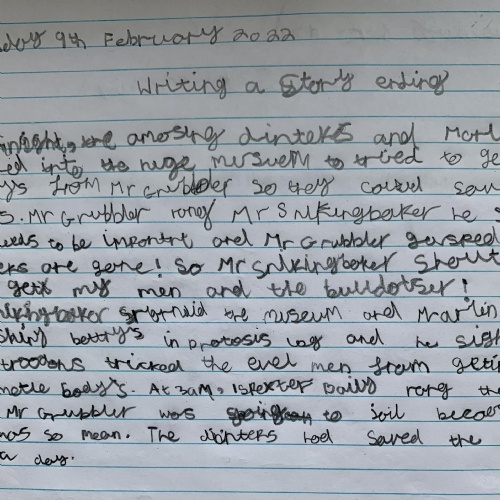 day 9th February 2022
Writing a Story ending
amosing dinters and Marl
ed into the huge musueM to tried to ge
ys from Mr Grubbler so they could sav
s. Mr Grubbler rang Mr Snikingbaker he s
needs to be importrt and Mr Grubbler gasped
ers are gone! So Mr Snikingbaker shout
get my men and the bulldotser!
nikingbaker the museum and Marlin
shiny bettry's in protosis leg and he sigh
troodons tricked the evel men from getin
motle body's. At 3am, Ispexter Daily rang the
Mr Grubbler was going to joil becor
mas so mean. The dinters had saved the
a day.